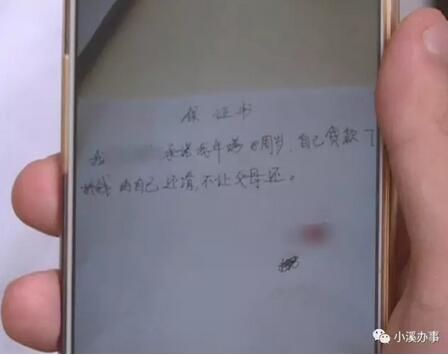 保证书
我 承诺我年满 周岁,自己贷款了
的钱由自己还清,不让父母还。
小溪办事